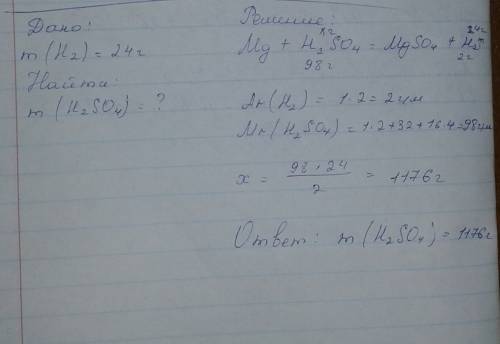 Дано:
m(H₂) = 24г
Найти:
m(H₂SO₄) = ?
Решение:
xг 24г
Mg + H₂SO₄ = MgSO₄ + H₂↑
98г 2г
Ar(H₂) = 1·2 = 2г/м
Mr(H₂SO₄) = 1·2+32+16·4=98г/м
x = 98·24 / 2 = 1176г
Ответ: m(H₂SO₄) = 1176г